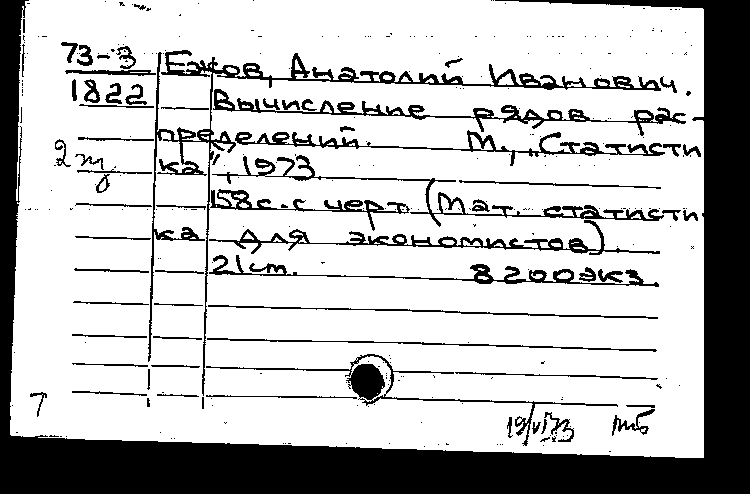 73-3 Ежов, Анатолий Иванович.
1822 Вычисление рядов рас-
пределений. М., „Статисти
ка", 1973.
158с. с черт. (Мат. статисти-
ка для экономистов).
21 см. 8200экз.
7
19/VI 73